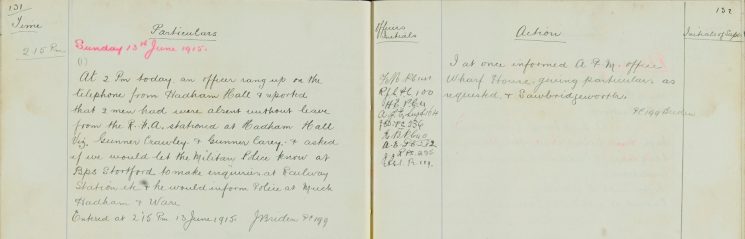 131
Time
Particulars
2.15 Pm
Sunday 13th June 1915.
(1)
At 2 Pm today, an officer rang up on the
telephone from Hadham Hall & reported
that 2 men had were absent without leave
from the R.F.A. stationed at Hadham Hall
Viz, Gunner Crawley & Gunner Carey, & asked
if we would let the Military Police know at
Bps Stortford to make enquiries at Railway
Station etc & he would inform Police at Much
Hadham & Ware
Entered at 2.15 Pm 13 June 1915 J Briden PC 199
Officers
Initials
Action
132
Initials of Supt
I at once informed A.P.M. office
Wharf House, giving particulars as
requested, & Sawbridgeworth.
PC 199 Briden